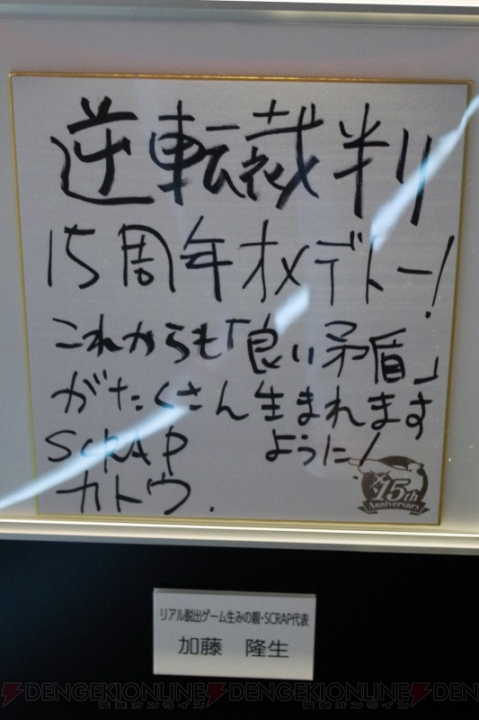 逆転裁判
15周年オメデトー!
これからも「良い矛盾」
がたくさん生まれます
ように!
SCRAP
カトウ.
15th
Anniversary
リアル脱出ゲーム生みの親・SCRAP代表
加藤 隆生
DENGEKIONLINE DENGEKIONLINE DENGEKIONLINE
電撃オンライン 電撃オンライン